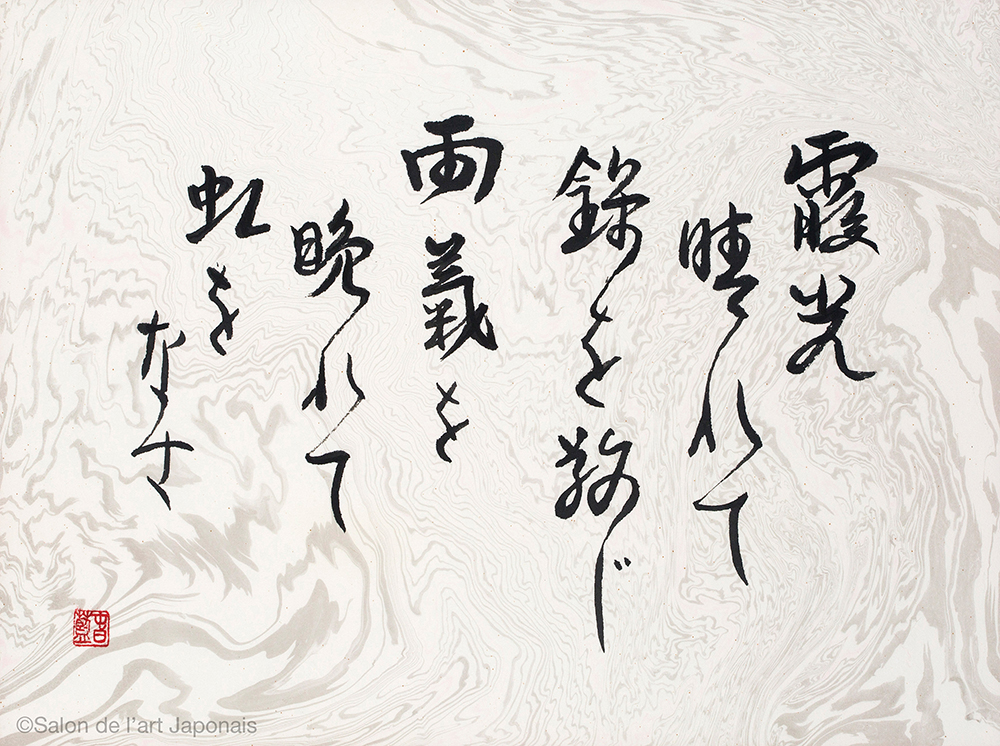 霞光
晴れて
錦を散じ
雨氣を
晩れて
虹をなす
©Salon de l'art Japonais